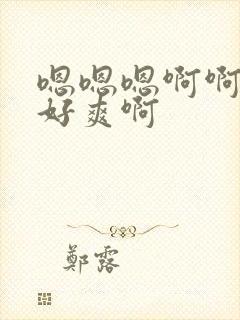 嗯嗯嗯啊啊
好爽啊
鄭露